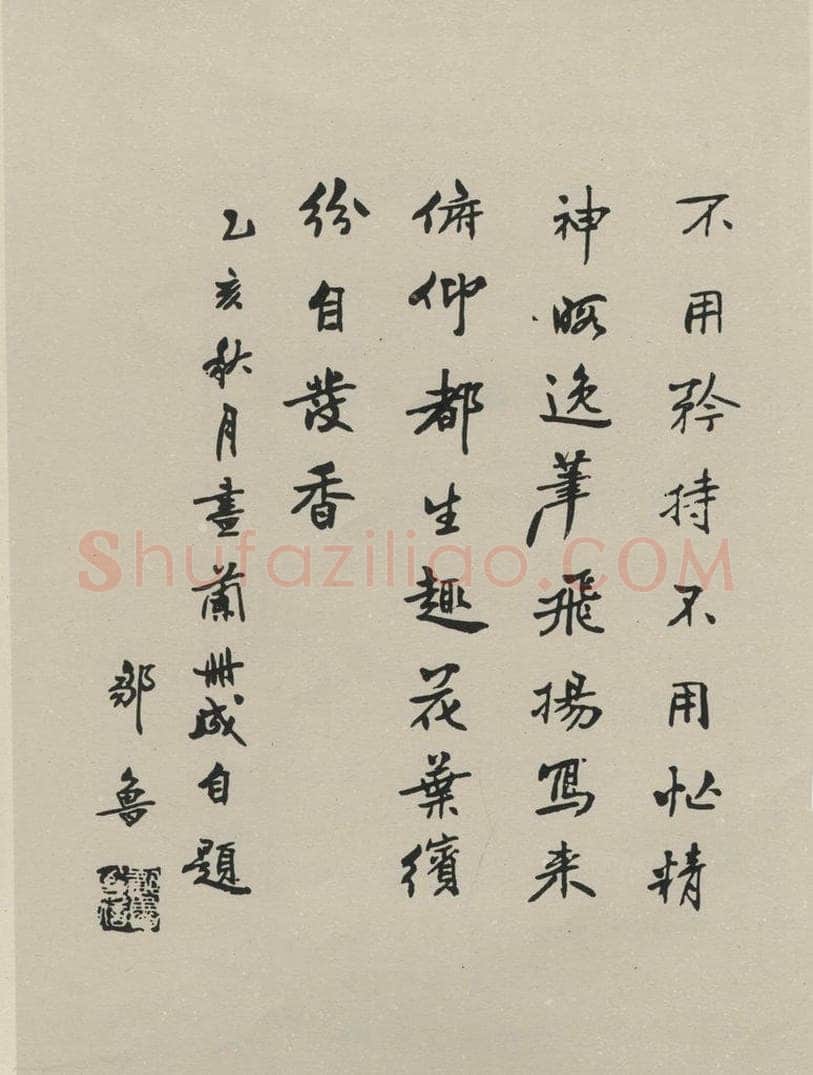 不用矜持不用忙精
神暇逸筆飛揚寫来
俯仰都生趣花葉繽
紛自發香
乙亥秋月畫蘭冊成自題
鄒魯
Shufaziliao.COM